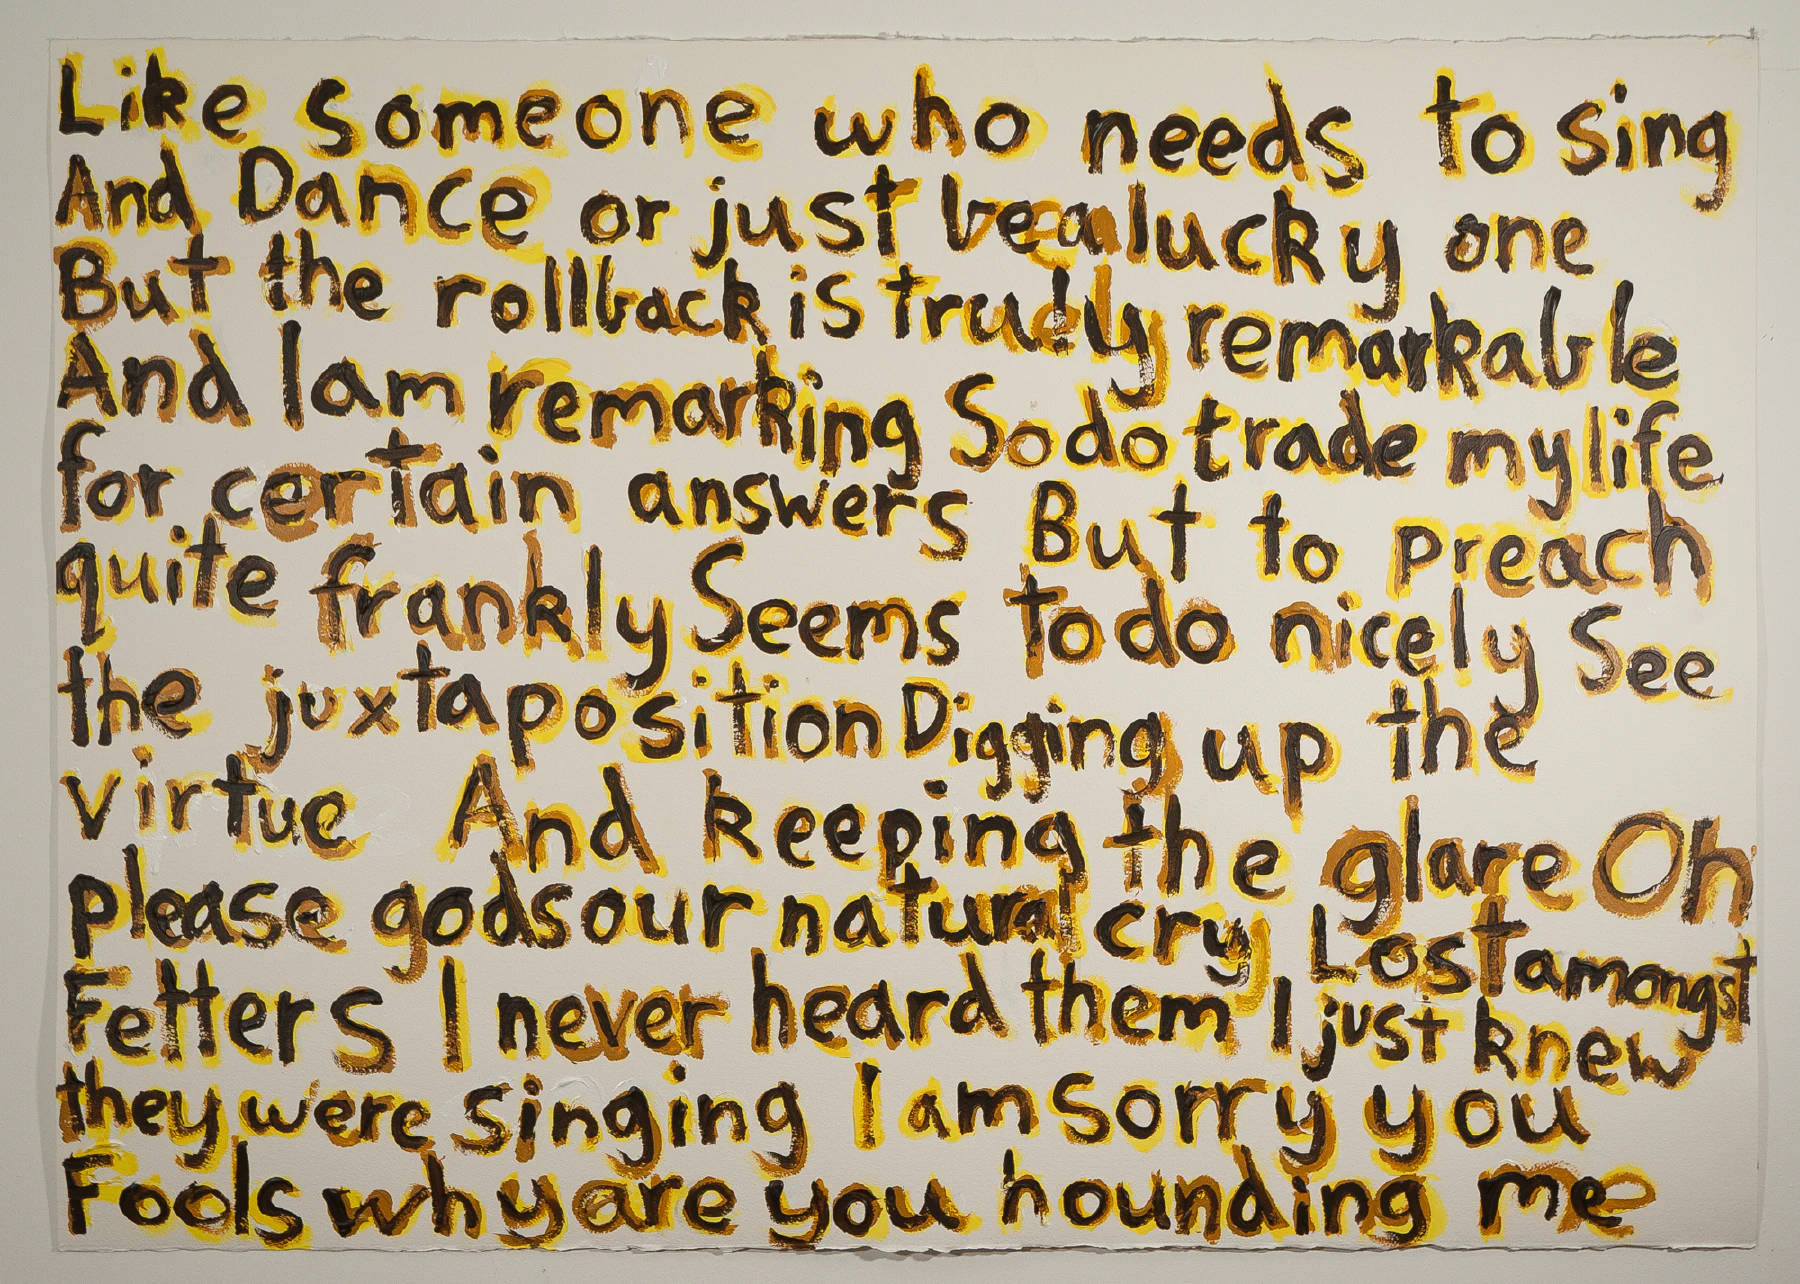 Like someone who needs to sing
And Dance or just be a lucky one
But the rollback is truely remarkable
And I am remarking So do trade my life
for certain answers But to preach
quite frankly Seems to do nicely See
the juxtaposition Digging up the
virtue And keeping the glare Oh
please gods our natural cry Lost amongst
Fetters I never heard them I just knew
they were singing I am sorry you
Fools why are you hounding me